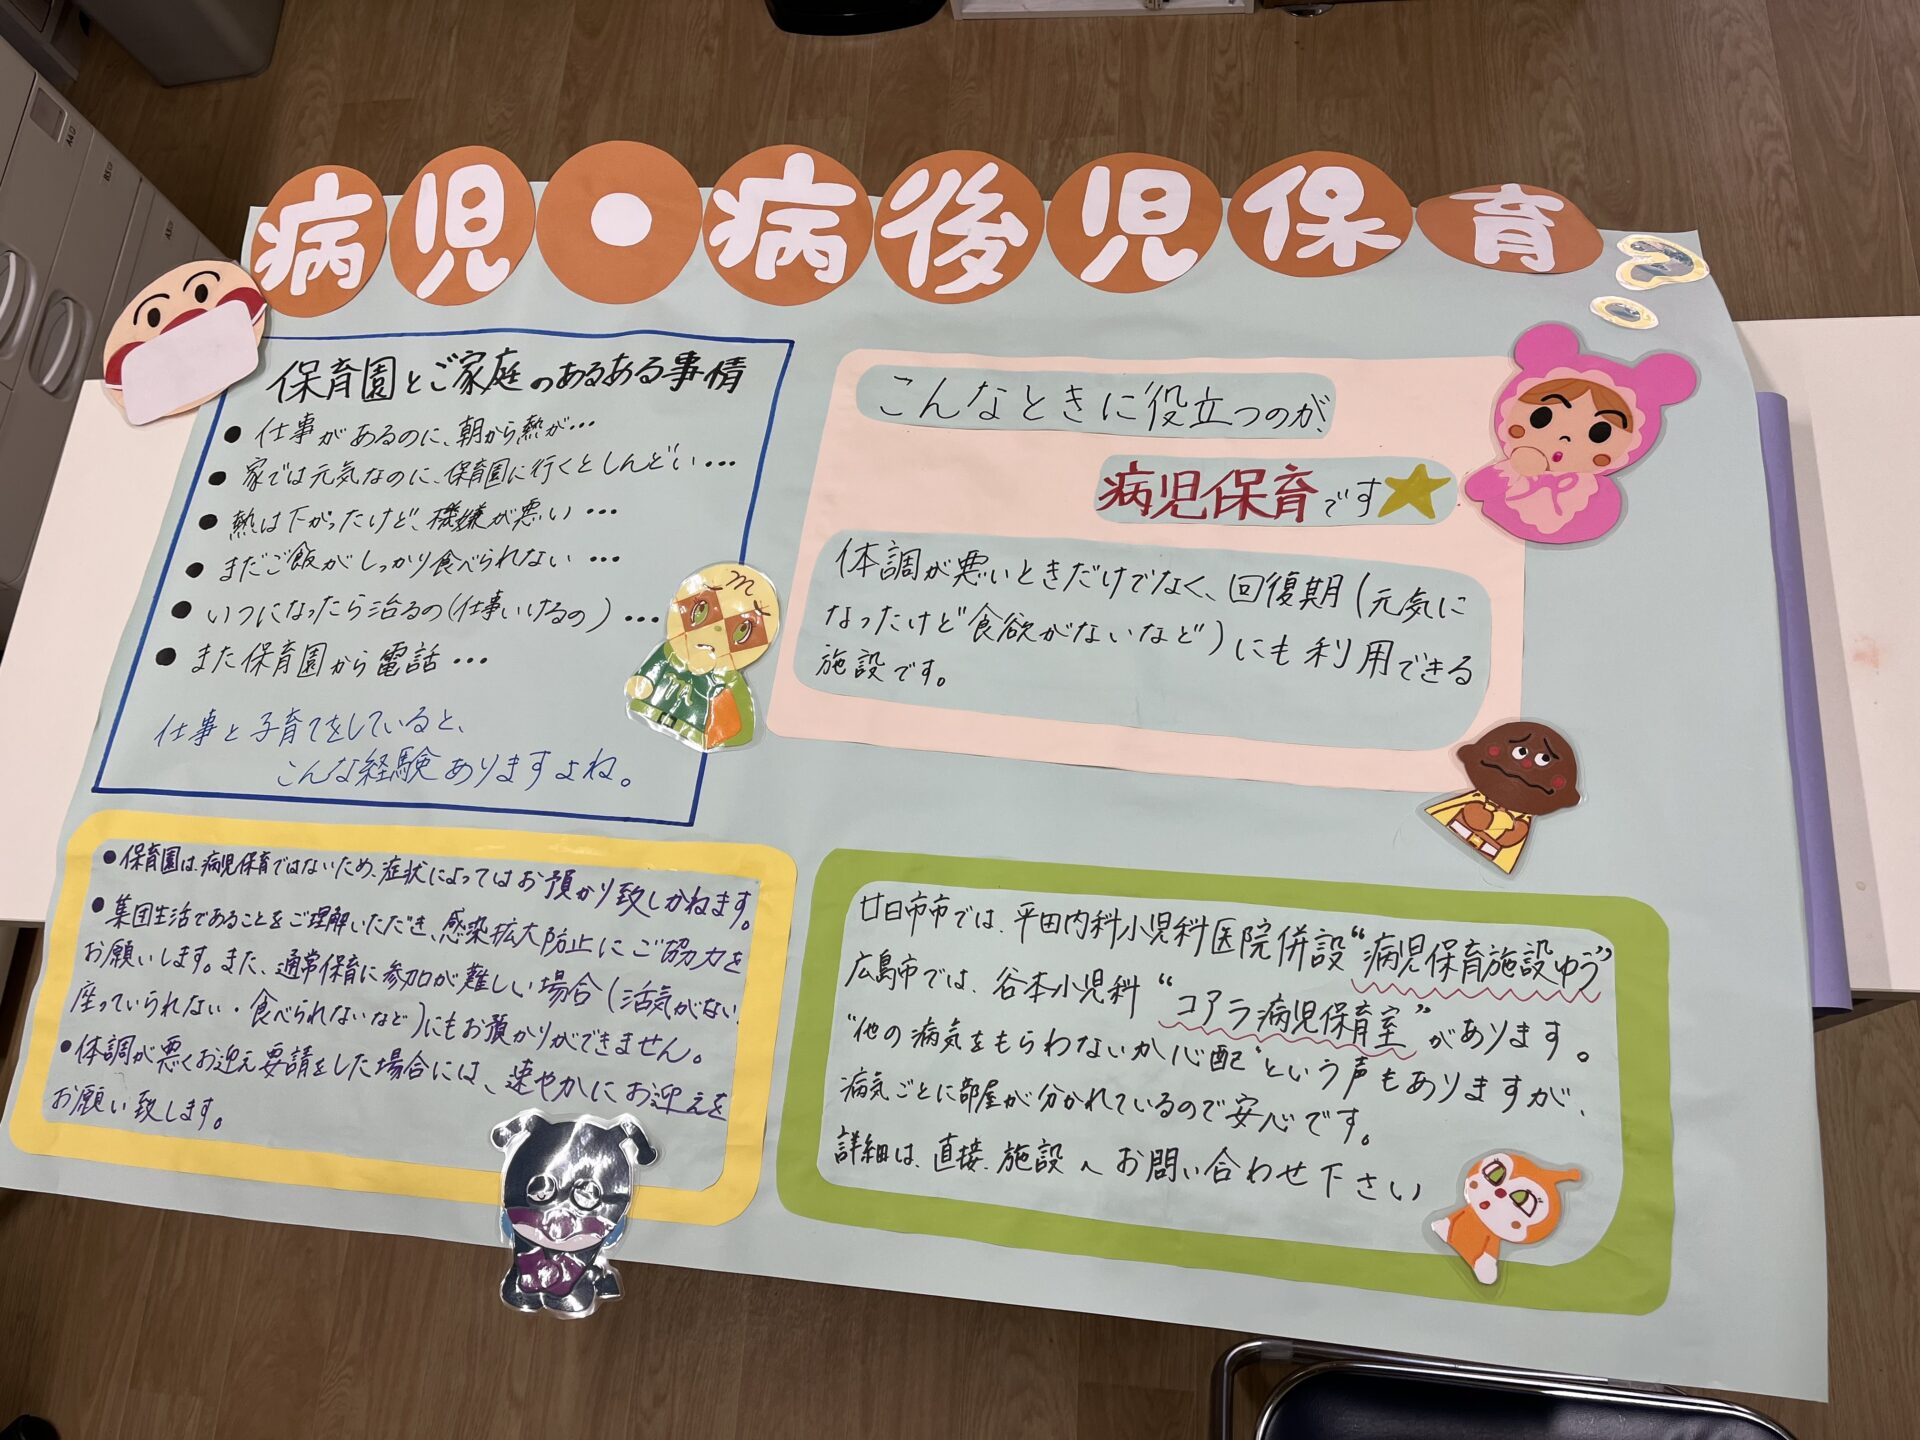 病児・病後児保育?
保育園とご家庭のあるある事情
● 仕事があるのに、朝から熱が…
● 家では元気なのに、保育園に行くとしんどい…
● 熱は下がったけど、機嫌が悪い…
● まだご飯がしっかり食べられない…
● いつになったら治るの(仕事いけるの)…
● また保育園から電話…
仕事と子育てをしていると、
こんな経験ありますよね。
こんなときに役立つのが、
病児保育です★
体調が悪いときだけでなく、回復期(元気に
なったけど食欲がないなど)にも利用できる
施設です。
●保育園は、病児保育ではないため、症状によってはお預かり致しかねます。
●集団生活であることをご理解いただき、感染拡大防止にご協力を
お願いします。また、通常保育に参加が難しい場合(活気がない、
座っていられない・食べられないなど)にもお預かりができません。
●体調が悪くお迎え要請をした場合には、速やかにお迎えを
お願い致します。
廿日市市では、平田内科小児科医院併設“病児保育施設ゆう”
広島市では、谷本小児科“コアラ病児保育室”があります。
“他の病気をもらわないか心配”という声もありますが、
病気ごとに部屋が分かれているので安心です。
詳細は、直接、施設へお問い合わせ下さい
A4
B5
A3